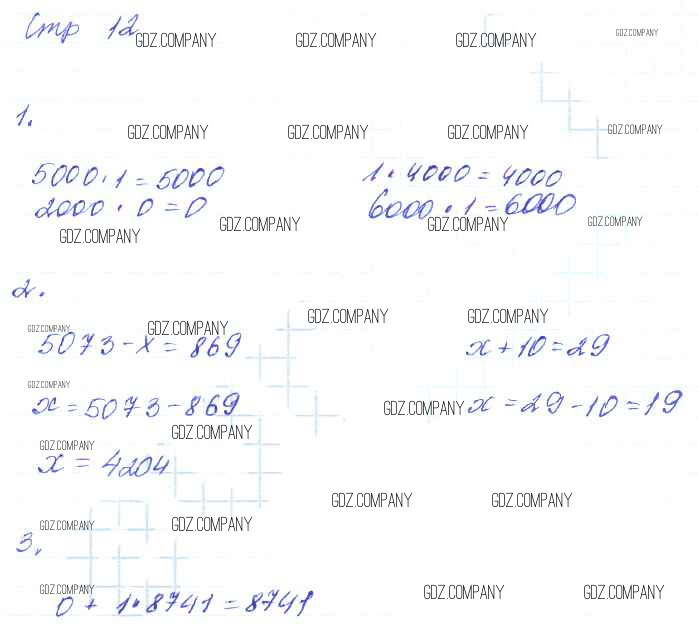 Стр 12
GDZ.COMPANY GDZ.COMPANY GDZ.COMPANY GDZ.COMPANY
1.
GDZ.COMPANY GDZ.COMPANY GDZ.COMPANY GDZ.COMPANY
5000 · 1 = 5000 1 · 4000 = 4000
2000 · 0 = 0 6000 · 1 = 6000
GDZ.COMPANY GDZ.COMPANY GDZ.COMPANY GDZ.COMPANY
2.
GDZ.COMPANY GDZ.COMPANY
GDZ.COMPANY GDZ.COMPANY
5073 - x = 869 x + 10 = 29
GDZ.COMPANY
x = 5073 - 869 GDZ.COMPANY x = 29 - 10 = 19
GDZ.COMPANY
GDZ.COMPANY
x = 4204
GDZ.COMPANY GDZ.COMPANY
GDZ.COMPANY GDZ.COMPANY
3.
GDZ.COMPANY GDZ.COMPANY GDZ.COMPANY
0 + 1 · 8741 = 8741